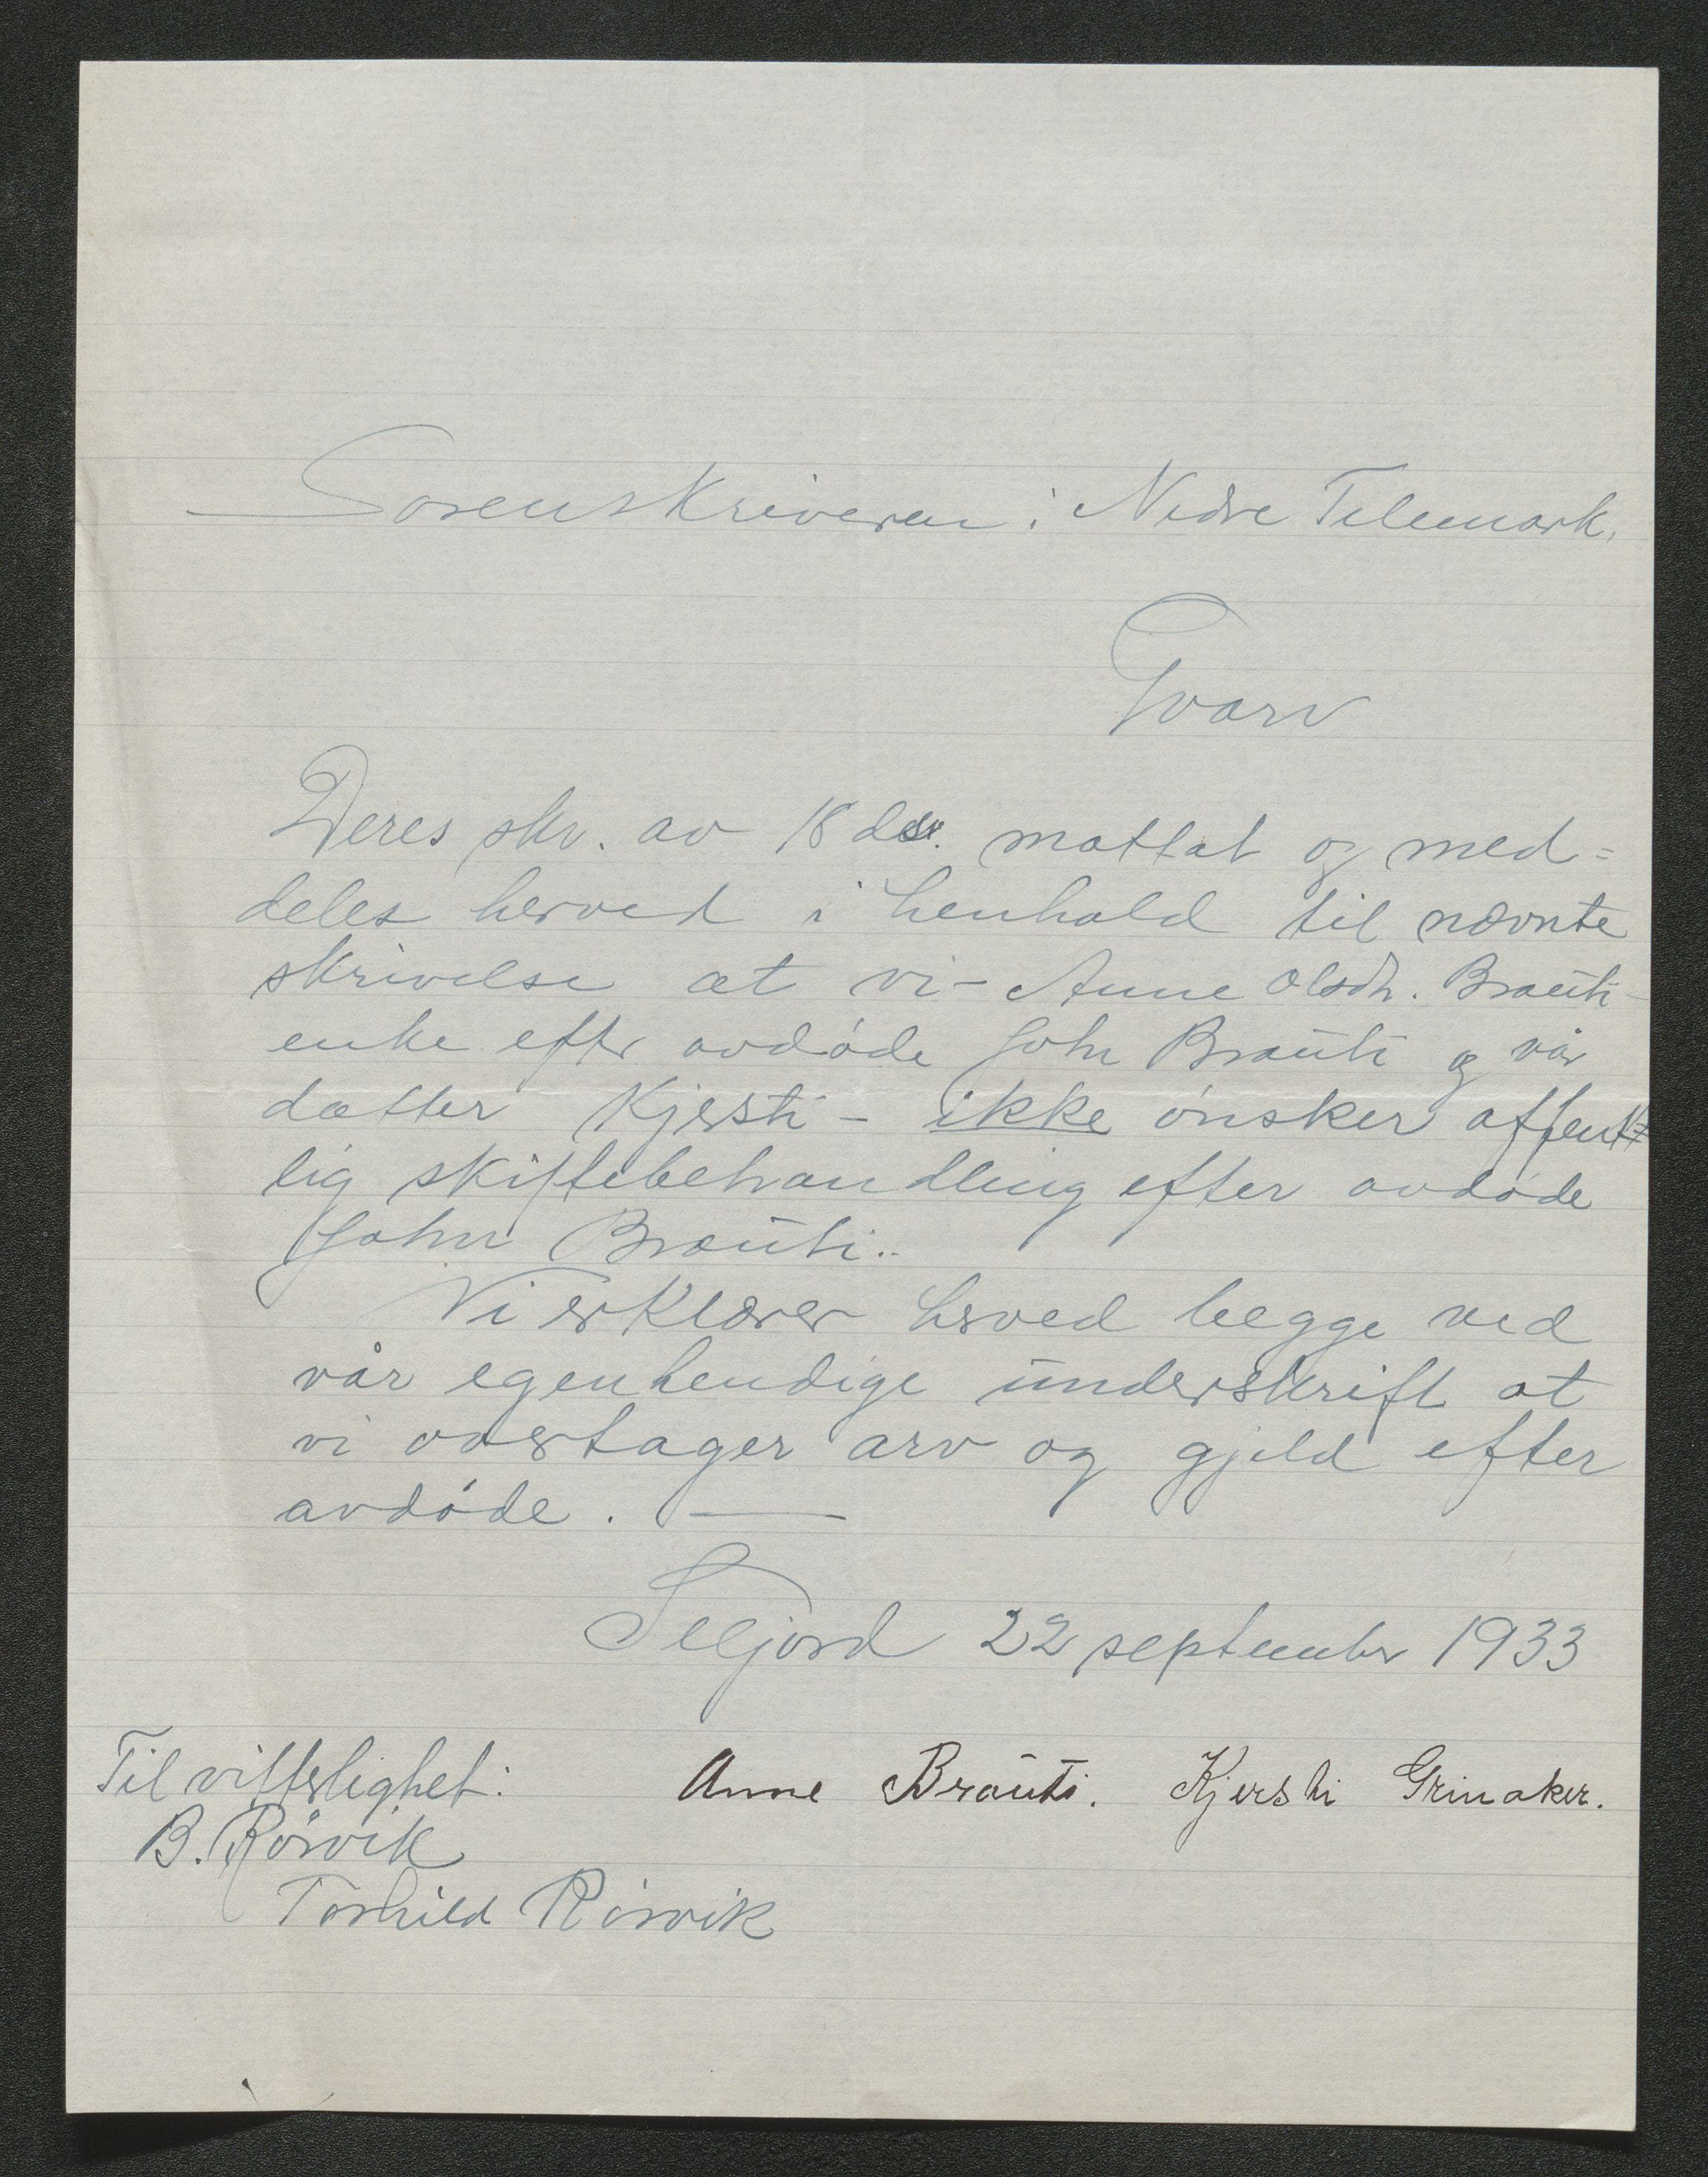 Sorenskriveren i Nedre Telemark.
Gvarv
Deres skv. av 18 ds. mottat og med=
deles herved i henhold til nævnte
skrivelse at vi - Anne Olsdtr. Brauti -
enke efter avdöde John Brauti og vår
datter Kjersti - ikke önsker offent=
lig skiftebehandling efter avdöde
John Brauti..
Vi erklærer herved begge ved
vår egenhendige underskrift at
vi overtager arv og gjeld efter
avdöde. —
Seljord 22 september 1933
Til vitterlighet: Anne Brauti. Kjersti Grinaker.
B. Rörvik
Torhild Rörvik